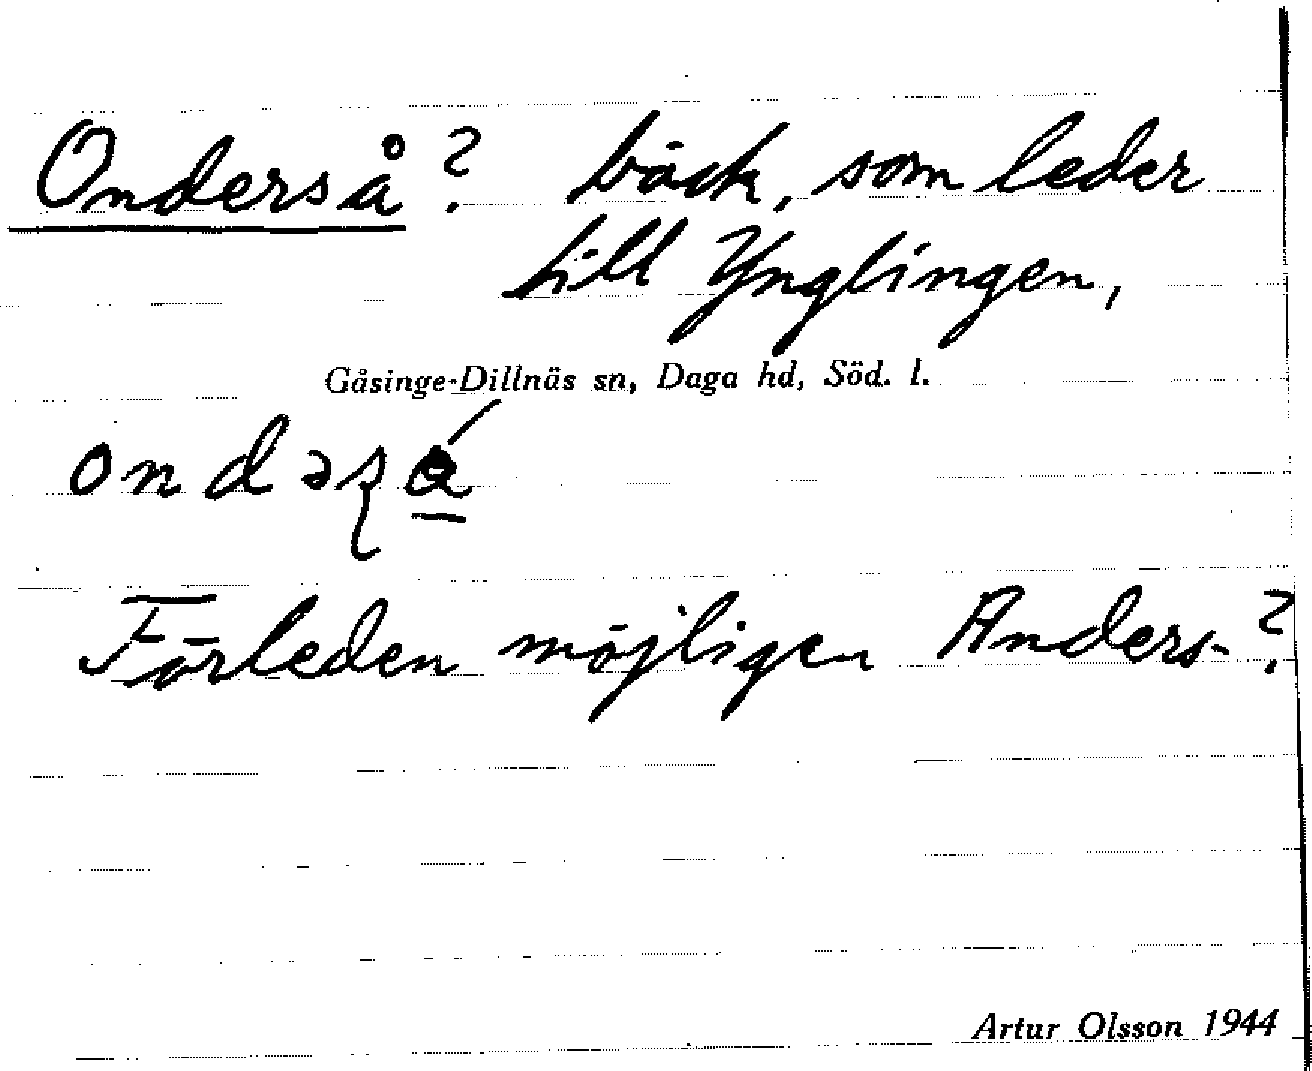 Onderså? bäck, som leder
till Ynglingen,
Gåsinge-Dillnäs sn, Daga hd, Söd. l.
ondəʂá
Förleden möjligen Anders-?
Artur Olsson 1944